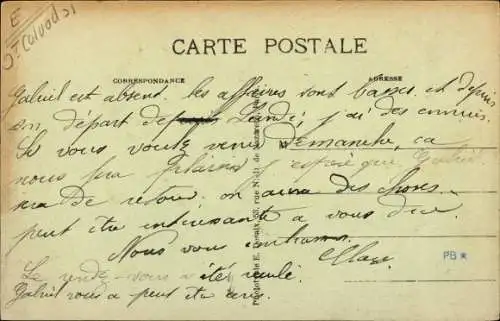 E
St Calvados
CARTE POSTALE
CORRESPONDANCE
ADRESSE
Gabriel est absent. les affaires sont basses. et depuis
son départ de Lundi, j'ai des ennuis.
Si vous voulez venir Demanche, ca
nous fera plaisir j'espère que Gabriel
sera de retour. on aura des choses
peut etre intéressante a vous dire
Nous vous
Le rendez-vous a été
Gabriel vous a peut etre
PB